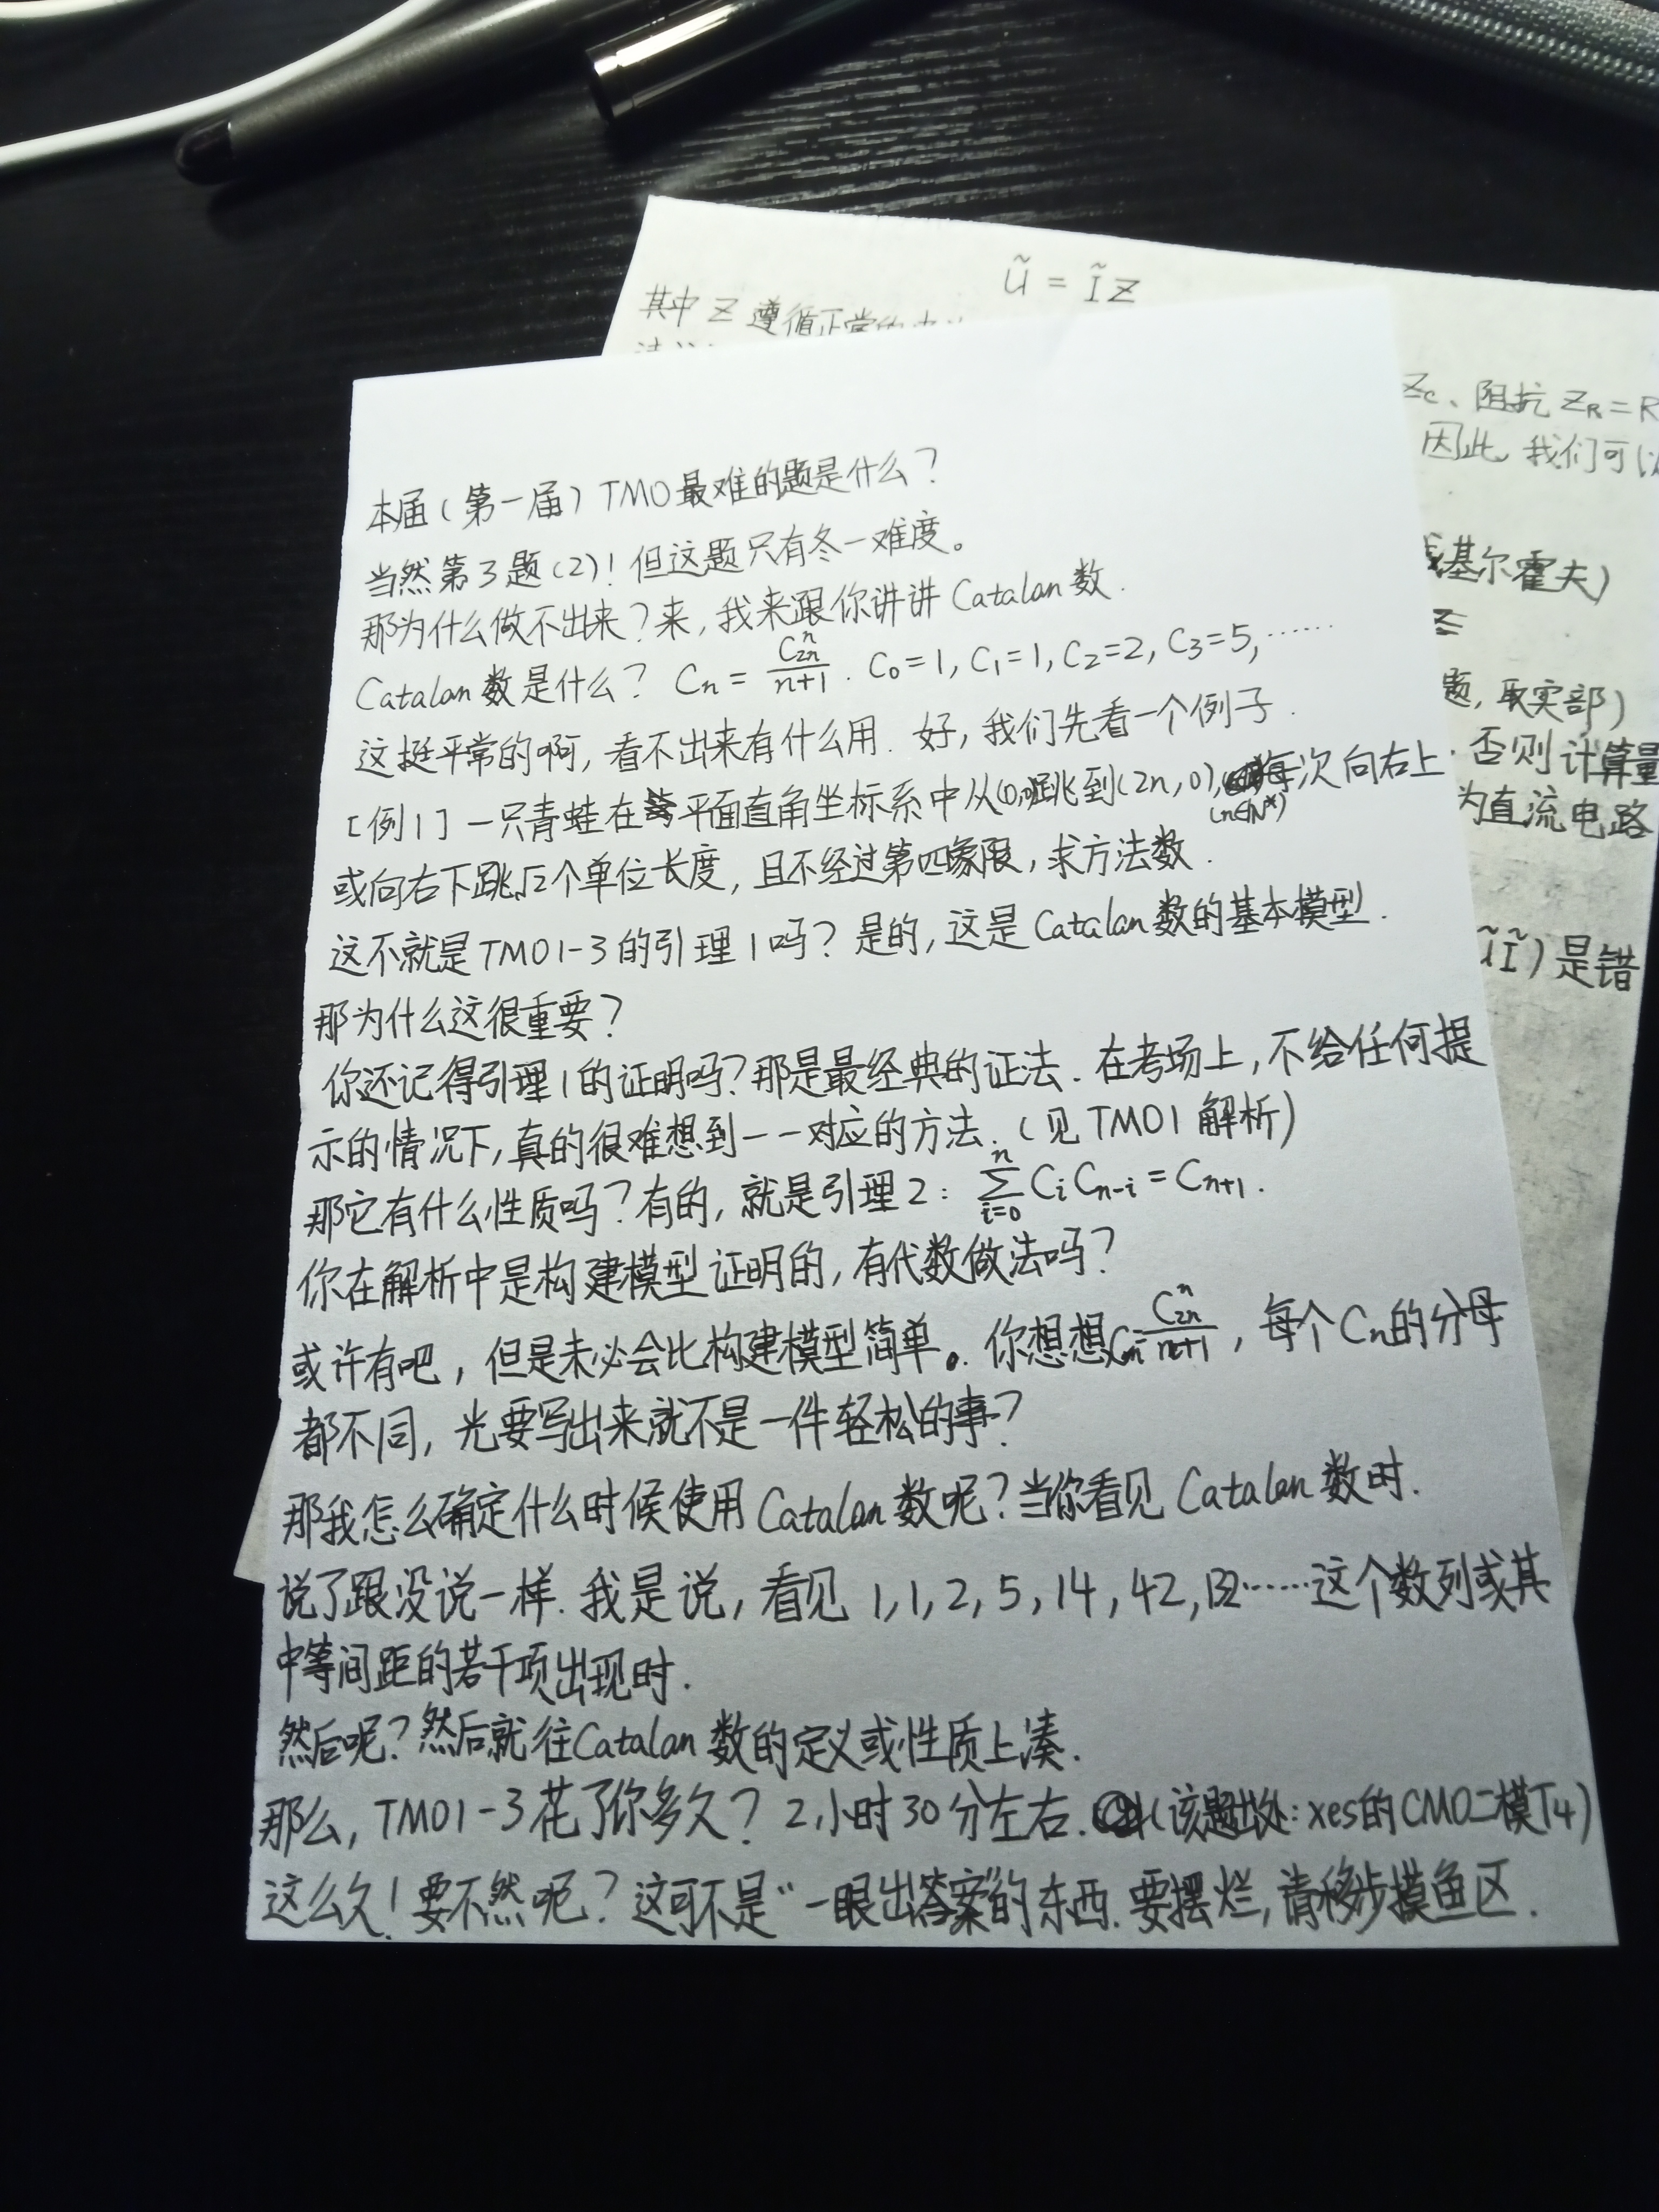 Ũ = ĨZ
其中 Z 遵循正常的
Zc、阻抗 Z_R = R
因此, 我们可以
基尔霍夫)
题, 取实部)
否则计算量
为直流电路
ŨĨ) 是错
本届(第一届) TMO 最难的题是什么?
当然第3题(2)! 但这题只有冬一难度。
那为什么做不出来? 来, 我来跟你讲讲 Catalan 数.
Catalan 数是什么? Cₙ = C_{2n}^{n}/(n+1). C₀=1, C₁=1, C₂=2, C₃=5, ……
这挺平常的啊, 看不出来有什么用. 好, 我们先看一个例子.
[例1] 一只青蛙在平面直角坐标系中从(0,0)跳到(2n,0), (n∈N*) 每次向右上
或向右下跳√2个单位长度, 且不经过第四象限, 求方法数.
这不就是TMO1-3的引理1吗? 是的, 这是 Catalan 数的基本模型.
那为什么这很重要?
你还记得引理1的证明吗? 那是最经典的证法. 在考场上, 不给任何提
示的情况下, 真的很难想到一一对应的方法. (见 TMO1 解析)
那它有什么性质吗? 有的, 就是引理2: ∑_{i=0}^{n} CᵢCₙ₋ᵢ = Cₙ₊₁.
你在解析中是构建模型证明的, 有代数做法吗?
或许有吧, 但是未必会比构建模型简单。你想想Cₙ=C_{2n}^{n}/(n+1), 每个Cₙ的分母
都不同, 光要写出来就不是一件轻松的事?
那我怎么确定什么时候使用 Catalan 数呢? 当你看见 Catalan 数时.
说了跟没说一样. 我是说, 看见 1, 1, 2, 5, 14, 42, 132……这个数列或其
中等间距的若干项出现时.
然后呢? 然后就往Catalan 数的定义或性质上凑.
那么, TMO1-3花了你多久? 2小时30分左右. (该题出处: xes的CMO二模T4)
这么久! 要不然呢? 这可不是“一眼出答案”的东西. 要摆烂, 请移步摸鱼区.